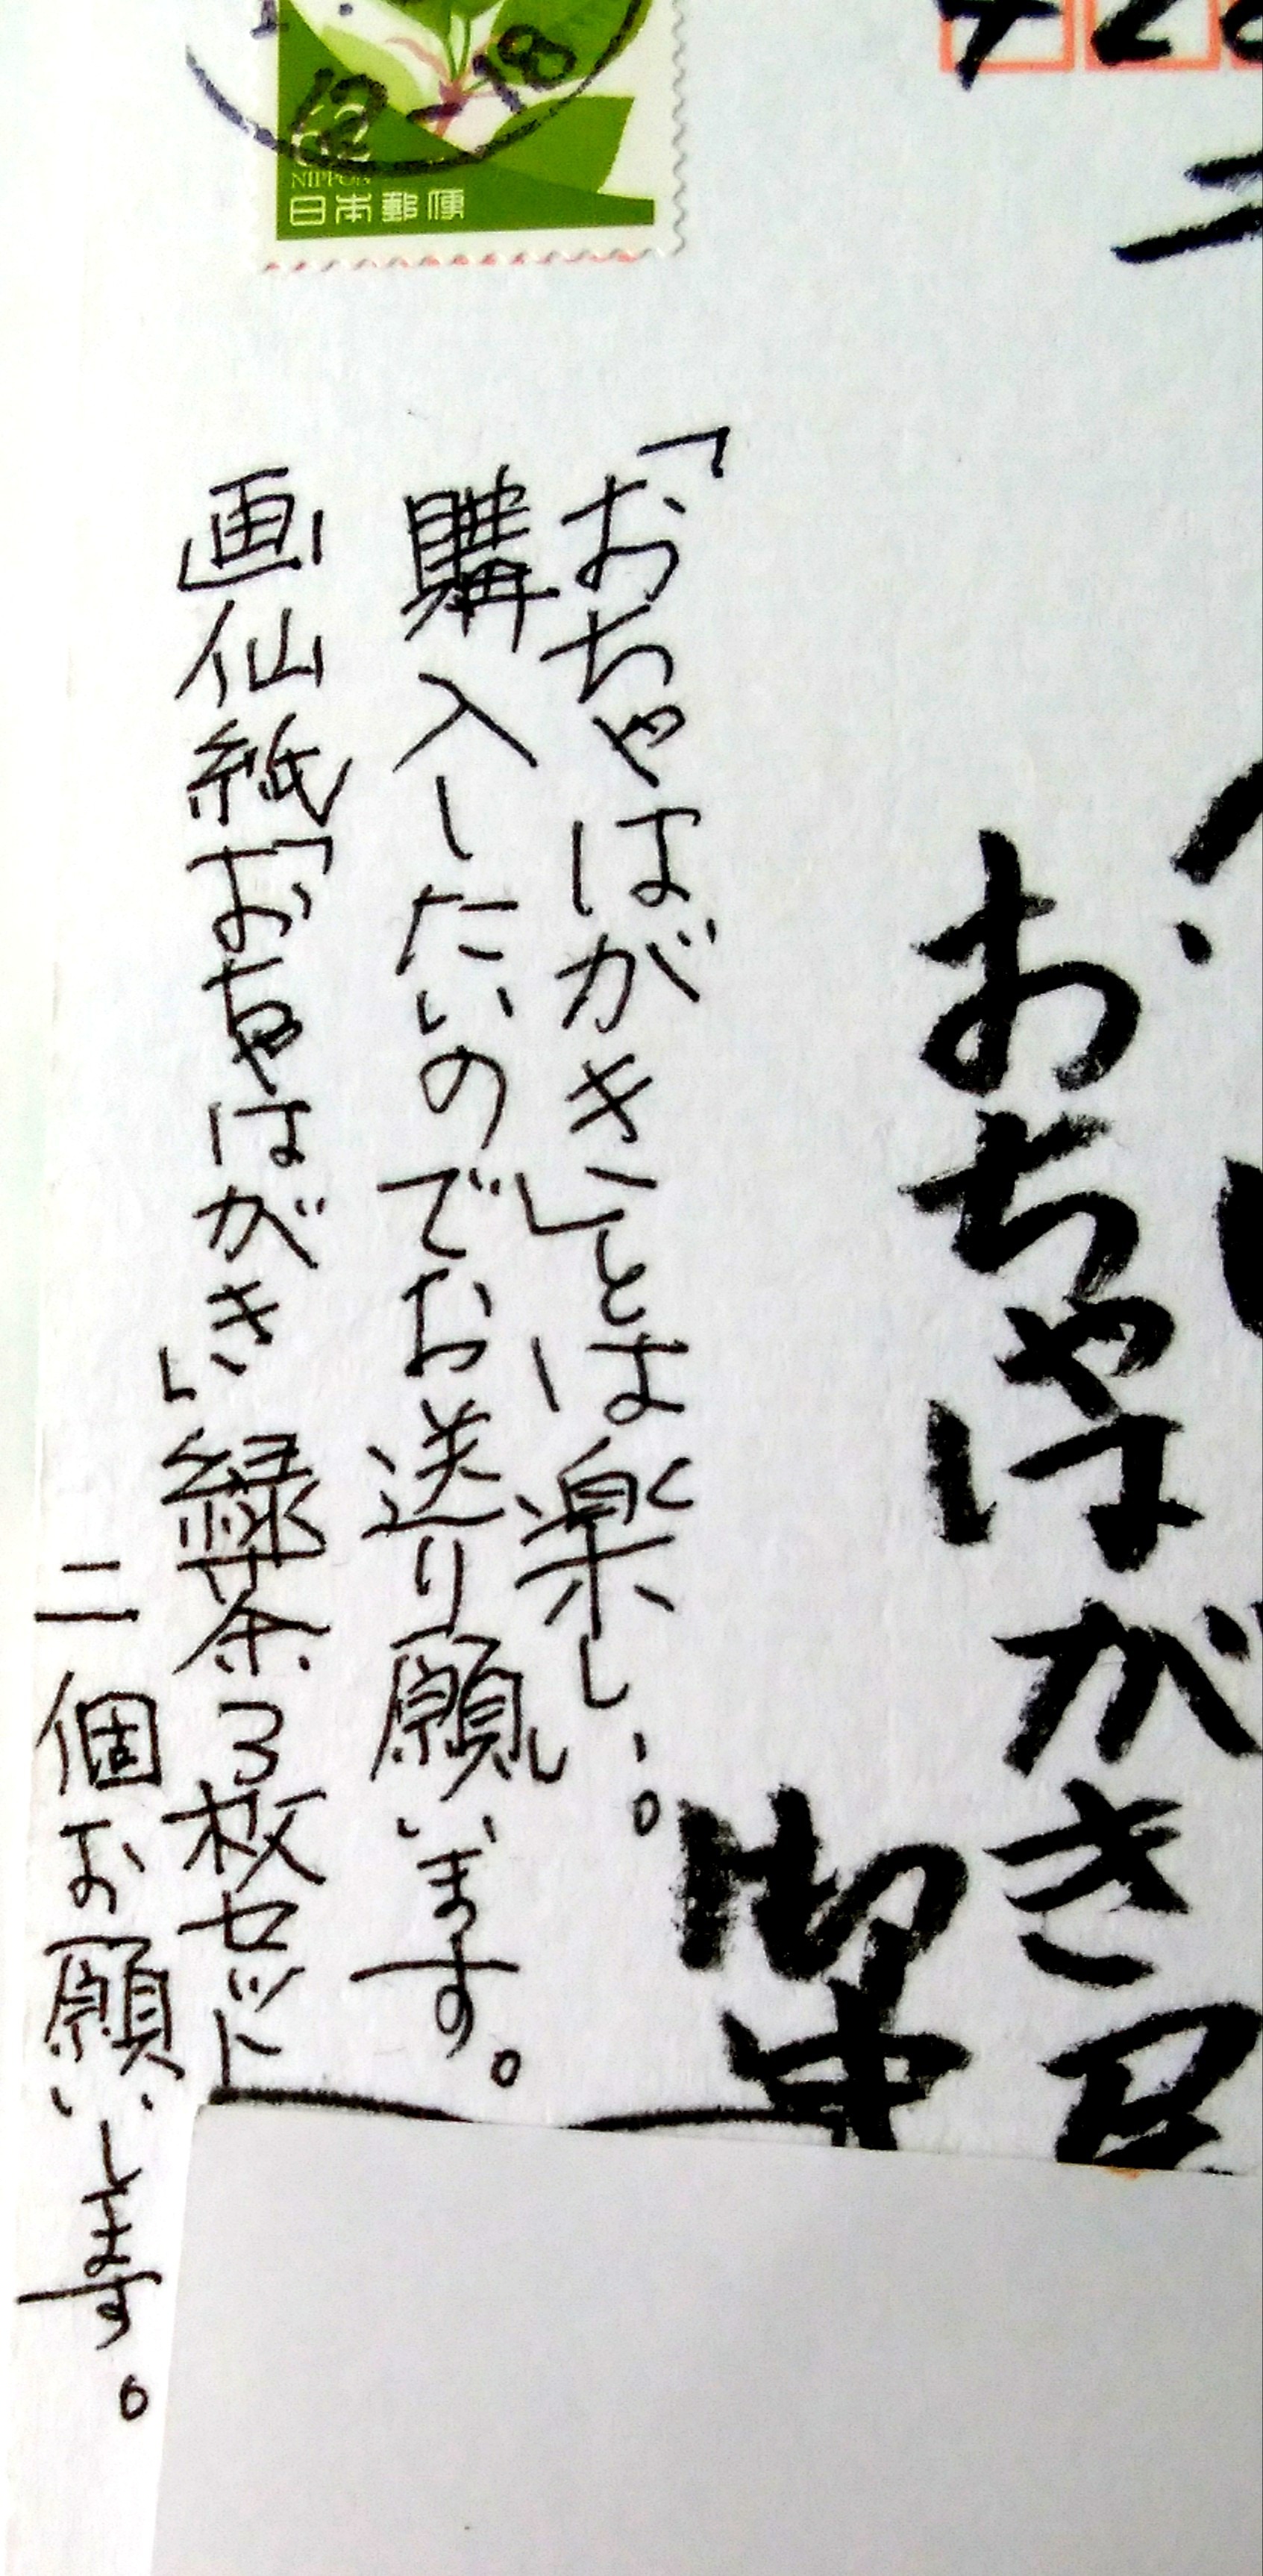 おちゃはがき
御中
「おちゃはがき」とは楽しい。
購入したいのでお送り願います。
画仙紙「おちゃはがき」緑茶3枚セット
二個お願いします。
62
NIPPON
日本郵便
12-18